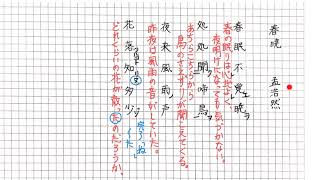 春暁
孟浩然
春眠不覚レ暁ヲ
春の眠りは心地よく、
夜明けになっても気づかない。
処処聞二啼鳥ヲ一
あちらこちらから
鳥のさえずりが聞こえてくる。
夜来風雨ノ声
昨夜は風雨の音がしていた。
花落知多少
どれくらいの花が散ったのだろうか。